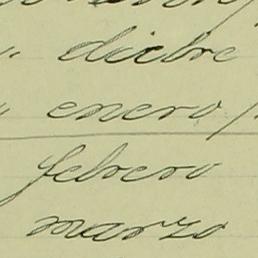 " dicbre
" enero/
febrero
marzo